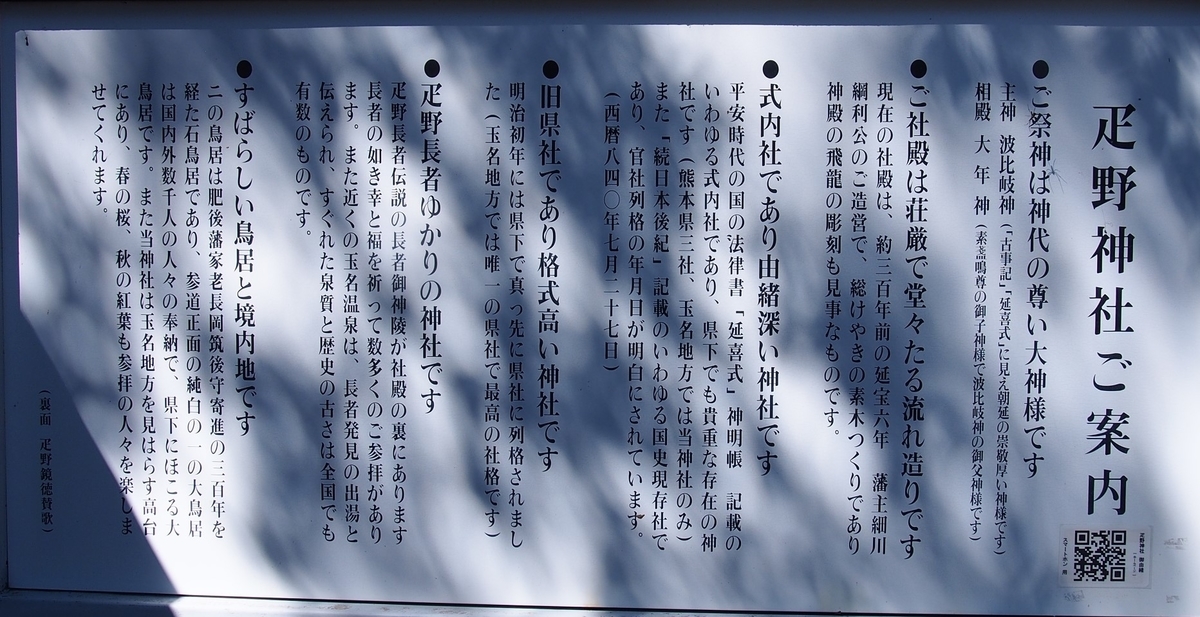 疋野神社ご案内
●ご祭神は神代の尊い大神様です
主神 波比岐神(『古事記』『延喜式』に見え朝廷の崇敬厚い神様です)
相殿 大年神(素盞鳴尊の御子神様で波比岐神の御父神様です)
●ご社殿は荘厳で堂々たる流れ造りです
現在の社殿は、約三百年前の延宝六年 藩主細川
綱利公のご造営で、総けやきの素木つくりであり
神殿の飛龍の彫刻も見事なものです。
●式内社であり由緒深い神社です
平安時代の国の法律書『延喜式』神明帳 記載の
いわゆる式内社であり、県下でも貴重な存在の神
社です(熊本県三社、玉名地方では当神社のみ)
また『続日本後紀』記載のいわゆる国史現存社で
あり、官社列格の年月日が明白にされています。
(西暦八四〇年七月二十七日)
●旧県社であり格式高い神社です
明治初年には県下で真っ先に県社に列格されまし
た(玉名地方では唯一の県社で最高の社格です)
●疋野長者ゆかりの神社です
疋野長者伝説の長者御神陵が社殿の裏にあります
長者の如き幸と福を祈って数多くのご参拝があり
ます。また近くの玉名温泉は、長者発見の出湯と
伝えられ、すぐれた泉質と歴史の古さは全国でも
有数のものです。
●すばらしい鳥居と境内地です
二の鳥居は肥後藩家老長岡筑後守寄進の三百年を
経た石鳥居であり、参道正面の純白の一の大鳥居
は国内外数千人の人々の奉納で、県下にほこる大
鳥居です。また当神社は玉名地方を見はらす高台
にあり、春の桜、秋の紅葉も参拝の人々を楽しま
せてくれます。
(裏面 疋野鏡徳賛歌)
疋野神社 御由緒
スマートホン用